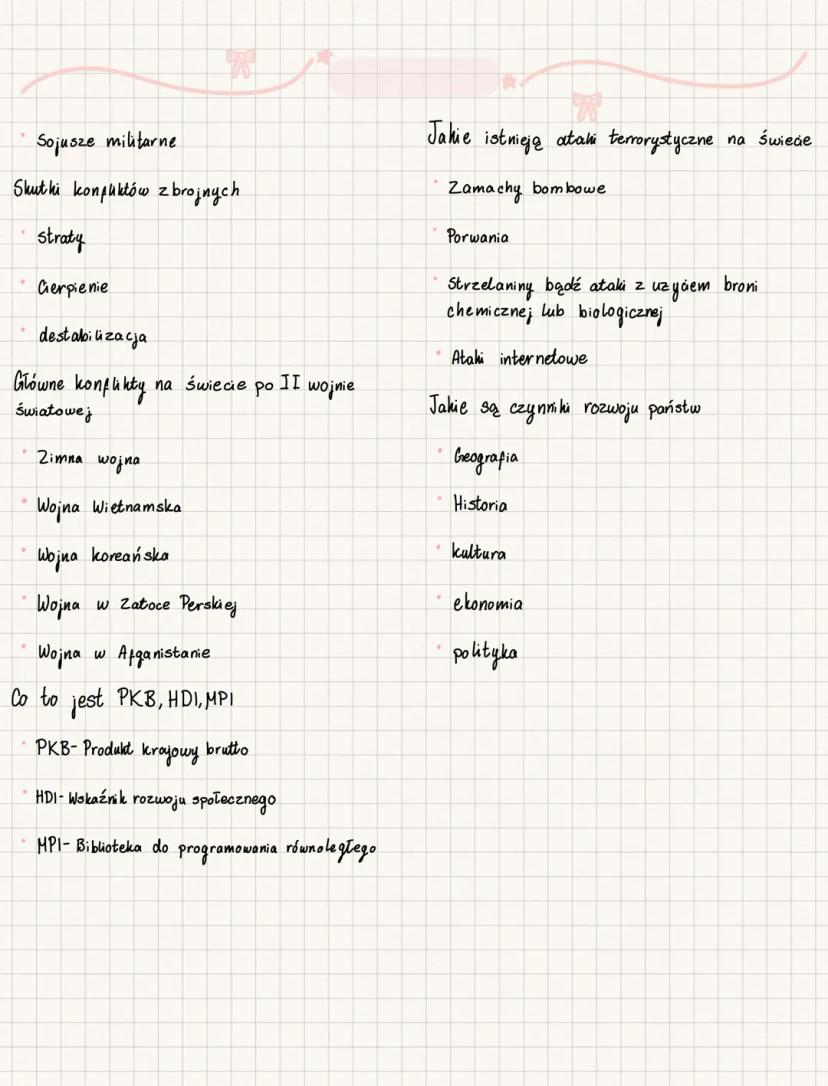 Sojusze militarne
Skutki konfliktów zbrojnych
straty
Cierpienie
destabilizacja
Główne konflikty na świecie po II wojnie
światowej
Zimna wojna
Wojna Wietnamska
Wojna koreańska
Wojna w Zatoce Perskiej
Wojna w Afganistanie
Co to jest PKB, HDI, MPI
PKB- Produkt krajowy brutto
HDI- Wskaźnik rozwoju społecznego
MPI- Biblioteka do programowania równoległego
Jakie istnieją ataki terrorystyczne na świecie
Zamachy bombowe
Porwania
Strzelaniny bądź ataki z uzyciem broni
chemicznej lub biologicznej
Ataki internetowe
Jakie są czynniki rozwoju państw
Geografia
Historia
kultura
ekonomia
polityka